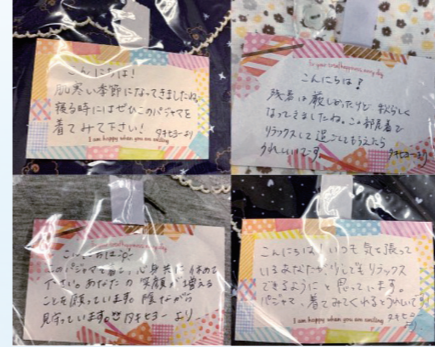 こんにちは!
肌寒い季節になってきましたね
寝る時にはぜひこのパジャマを
着てみて下さい!
タキヒヨーより
I am happy when you are smiling
for your small happiness every day
こんにちは!
残暑は厳しかったけど秋らしく
なってきましたね。この部屋着で
リラックスして過ごしてもらえたら
うれしいです。
タキヒヨーより
こんにちは
このパジャマを着て、心身共に休めて
下さい。あなたの笑顔が増える
ことを願っています。陰ながら
見守っています。
タキヒヨーより
こんにちは!いつも気を張って
いるあなたが少しでもリラックス
できるようにと思っています。
パジャマ、着てみてくれるとうれしいです!
I am happy when you are smiling
タキヒヨーより